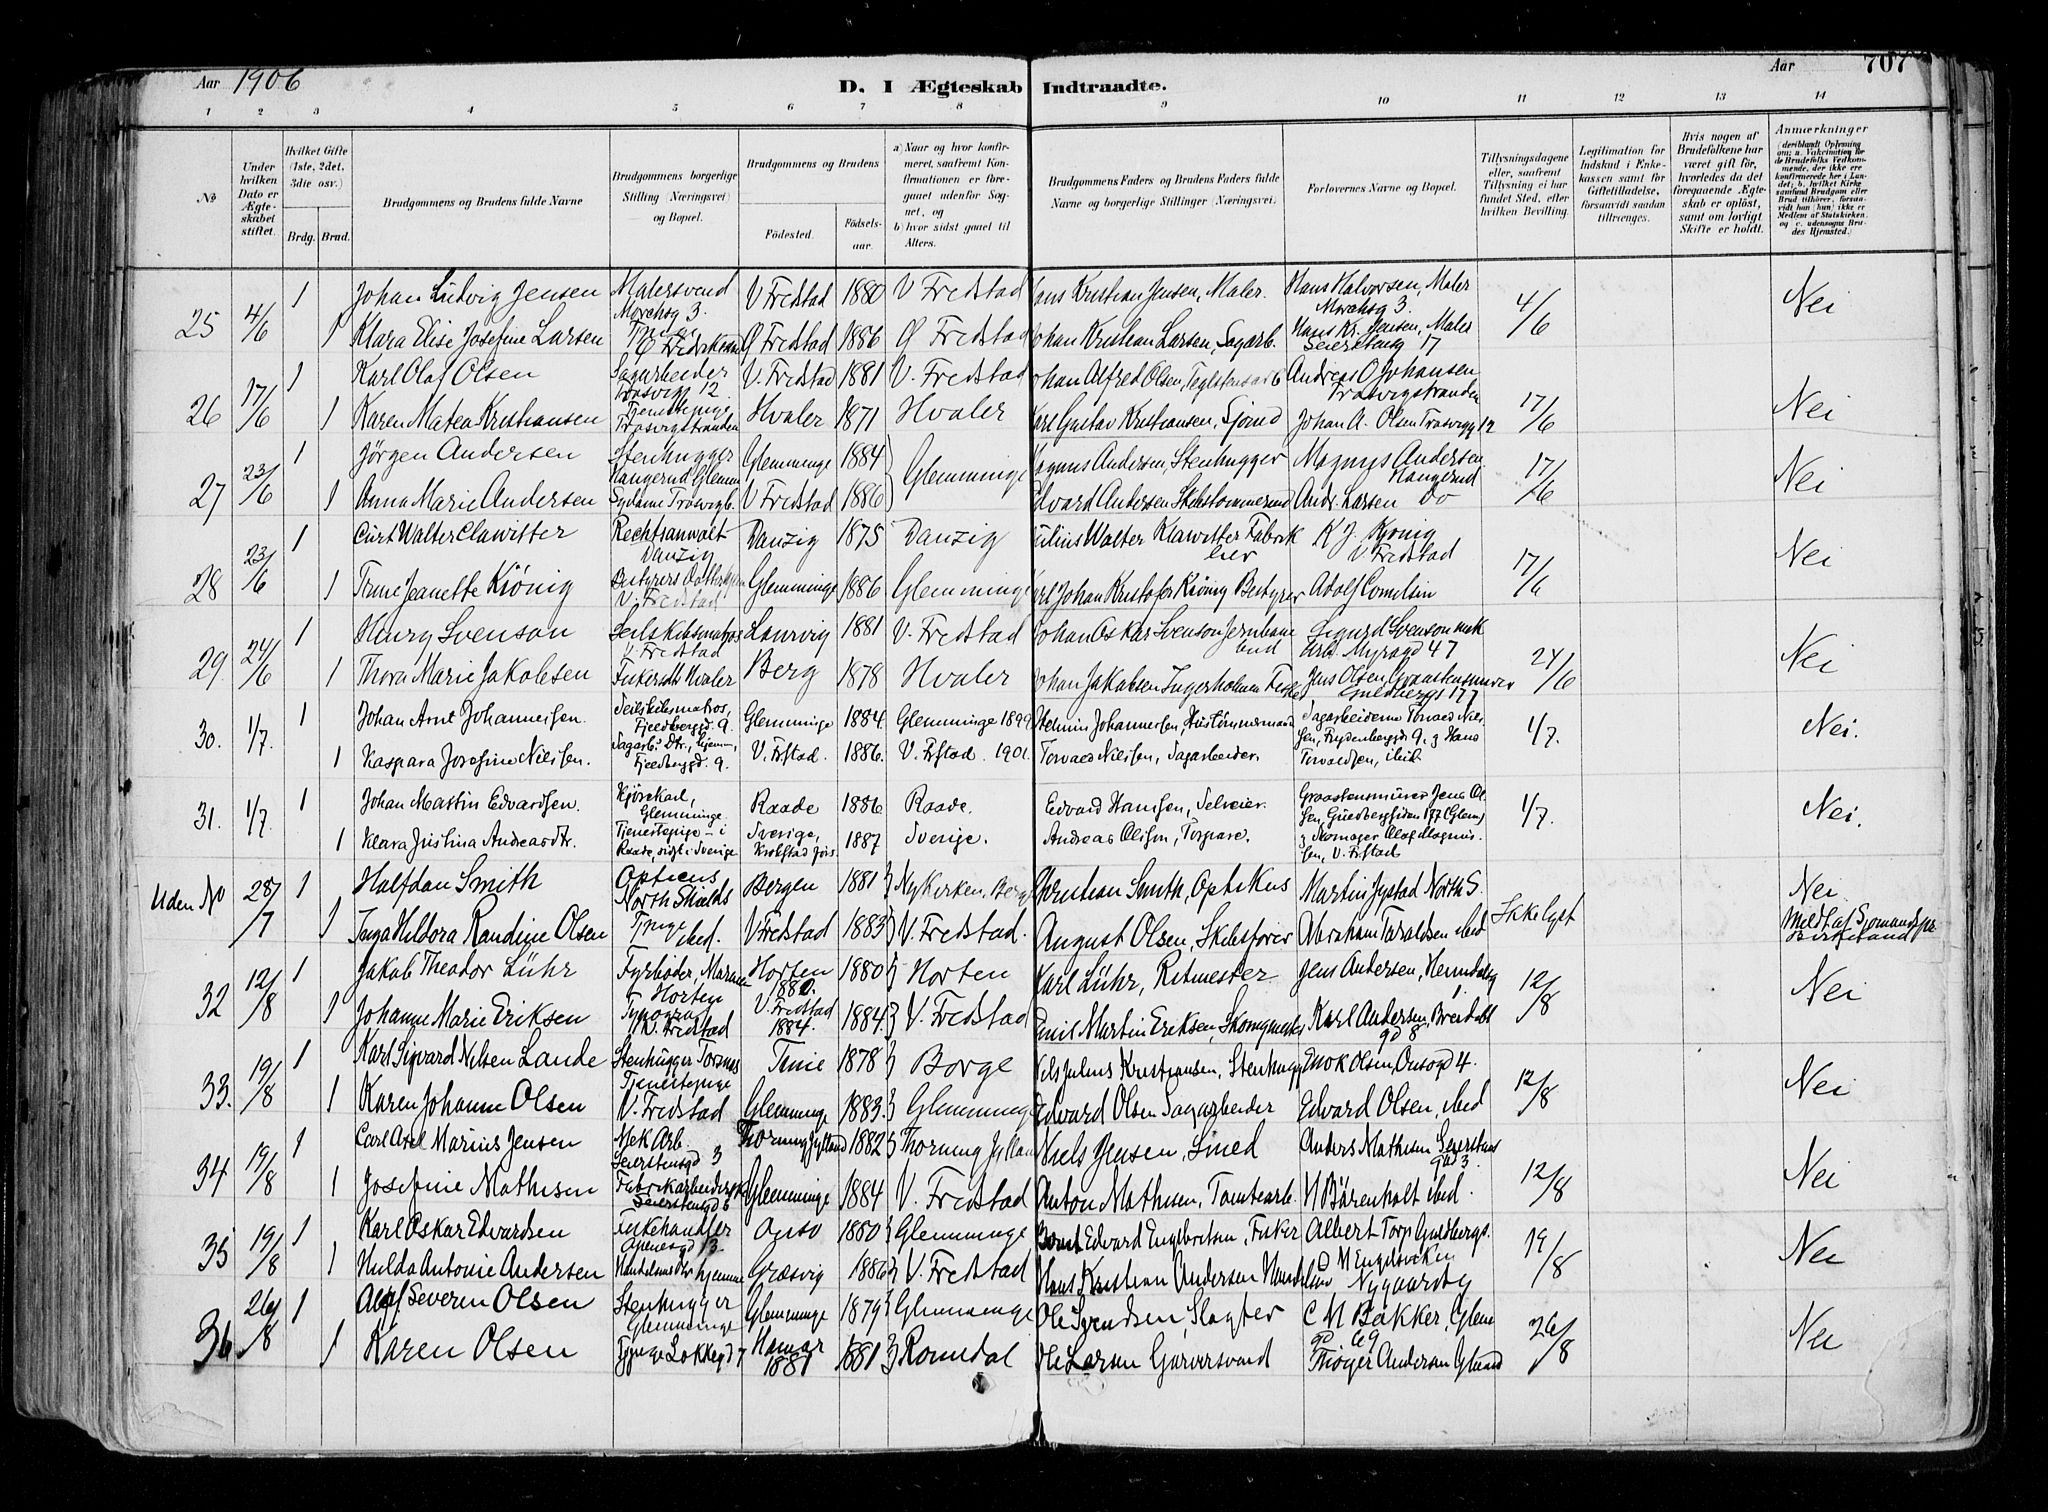 Aar 1906
D. I Ægteskab Indtraadte.
Aar
707
1 2 3 4 5 6 7 8 9 10 11 12 13 14
No
Under hvilken Dato er Ægteskabet stiftet.
Hvilket Gifte (1ste, 2det, 3die osv.)
Brdg. Brud.
Brudgommens og Brudens fulde Navne
Brudgommens borgerlige Stilling (Næringsvei) og Bopæl.
Brudgommens og Brudens
Födested. Födselsaar.
a) Naar og hvor konfirmeret, saafremt Konfirmationen er foregaaet udenfor Sognet, og
b) hvor sidst gaaet til Alters.
Brudgommens Faders og Brudens Faders fulde Navne og borgerlige Stillinger (Næringsvei)
Forlovernes Navne og Bopæl.
Tillysningsdagene eller, saafremt Tillysning ei har fundet Sted, efter hvilken Bevilling.
Legitimation for Indskud i Enkekassen samt for Giftetilladelse, forsaavidt saadan tiltrænges.
Hvis nogen af Brudefolkene har været gift för, hvorledes da det foregaaende Ægteskab er oplöst, samt om lovligt Skifte er holdt.
Anmærkninger
25 4/6 1 Johan Ludvig Jensen Malersvend Morchsg 3. V Fredstad 1880 V Fredstad Hans Kristian Jensen, Maler. Hans Halvorsen, Maler Morchsg 3. 4/6 Nei
1 Klara Elise Josefine Larsen Ø Fredstad 1886 Ø Fredstad Johan Kristian Larsen, Sagarb. Hans Kr. Jensen, Maler Seierstensg 17
26 17/6 1 Karl Olaf Olsen Sagarbeider Trosvigg 12. V. Fredstad 1881 V. Fredstad Johan Alfred Olsen, Andreas O Johansen Trosvigstranden 17/6 Nei
1 Karen Matea Kristiansen Tjenestepige Trosvigstranden Hvaler 1871 Hvaler Karl Gustav Kristiansen, Sjömd Johan A. Olsen Trosvigg 12
27 23/6 1 Jörgen Andersen Stenhugger Haugerud Glemm Glemminge 1884 Glemminge Magnus Andersen, Stenhugger Magnus Andersen Haugerud 17/6 Nei
1 Anna Marie Andersen Sydame Trosvigb. V Fredstad 1886 Edvard Andersen Skibstømmermd Andr. Larsen Do
28 23/6 1 Curt Walter Clawitter Rechtsanwalt Danzig Danzig 1875 Danzig Julius Walter Klawitter Fabrikeier K J. Kjönig V Fredstad 17/6 Nei
1 Jeanette Kiönig Bestyrers Datter V. Fredstad Glemminge 1886 Glemminge Karl Johan Kristofer Kiönig Bestyrer Adolf Cornelin
29 24/6 1 Henry Svenson Seilskibsmatros V. Fredstad Laurvig 1881 V. Fredstad Johan Oskar Svenson Jernbane Sigurd Svenson mek Arb. Myragd 47 24/6 Nei
1 Thora Marie Jakobsen Hvaler Berg 1878 Hvaler Johan Jakobsen Ingerholmen Jens Olsen Graastensmurer Guldbergs 177
30. 1/7. 1 Johan Arnt Johannessen. Seilskibsmatros, Fjeldberggd. 9. Glemminge 1884. Glemminge 1899 Helmin Johannessen, Hustömmermand Sagarbeiderne Torvald Nilssen, Frydenberggd 9. og Hans Torvaldsen, ibid 1/7. Nei.
1 Kaspara Josefine Nilssen. Sagarb.s Dtr., hjemm, Fjeldberggd. 9. V. Frstad. 1886. V. Frstad. 1901. Torvald Nilssen, Sagarbeider.
31. 1/7. 1 Johan Martin Edvardsen. Kjörekarl, Glemminge. Raade 1886 Raade. Edvard Hanssen, Selveier. Graastensmurer Jens Olsen, Guldbergsiden 177 (Glem) & Skomager Olaf Magnussen, V. Frstad 1/7. Nei.
1 Klara Justina Andreasdtr. Tjenestepige – i Raade, sidst i Sverige Sverige, 1887 Sverige. Andreas Olssen, Torpare.
Uden No 28/7 1 Halfdan Smith Opticus North Shields Bergen 1881 Nykirken, Berg Kristian Smith, Optikus Martin Jystad North S. Ikke lyst Nei
1 Inga Hildora Randine Olsen Tjpige ibid. V. Fredstad 1883 V. Fredstad. August Olsen, Skibsförer Abraham Taraldsen ibid Meldt af Sjomandspr Birkeland
32 12/8 1 Jakob Theodor Lühr Fyrböder, Marinen Horten Horten 1880. 1880 Horten Karl Lühr, Ritmester Jens Andersen, 12/8 Nei
1 Johanne Marie Eriksen V. Fredstad V. Fredstad 1884. 1884. V. Fredstad Emil Martin Eriksen, Skomgmester Karl Andersen, gd 8
33. 19/8 1 Karl Sigvard Nilsen Lande Stenhugger Torsnes Tune 1878 Borge Nils Julius Kristiansen, Stenhugg Enok Olsen Onsögd 4. 12/8 Nei
1 Karen Johanne Olsen Tjenestepige V. Fredstad Glemminge 1883. Glemminge Edvard Olsen Sagarbeider Edvard Olsen, ibid
34 19/8 1 Carl Axel Marius Jensen Mek Arb. Seierstensgd 3 Thorning Jylland 1882 Thorning Jylland Niels Jensen, Smed Anders Mathisen Seierstens gad 3. 12/8 Nei
1 Josefine Mathisen Fabrikarbeiderske Seierstensgd 6 Glemminge 1884 V. Fredstad Anton Mathisen, Tomtearb. H Bärenholt ibid.
35 19/8 1 Karl Oskar Edvardsen Fiskehandler 13. Onsö 1880 Glemminge Bernt Edvard Engebretsen, Fisker Albert Torp Guldbergs. 19/8 Nei
1 Hulda Antonie Andersen hjemme Græsvig 1886 V. Fredstad Hans Kristian Andersen M Engelsviken Nygaardsg
36 26/8 1 Olaf Severin Olsen Stenhugger Glemminge Glemminge 1879 Glemminge Ole Svendsen, Slagter C M Bakker, Glem gd 69 26/8 Nei
1 Karen Olsen Tjpige Løkkegd 7 Hamar 1881 1881 Romedal Ole Larsen Garversvend Thöger Andersen Glmd